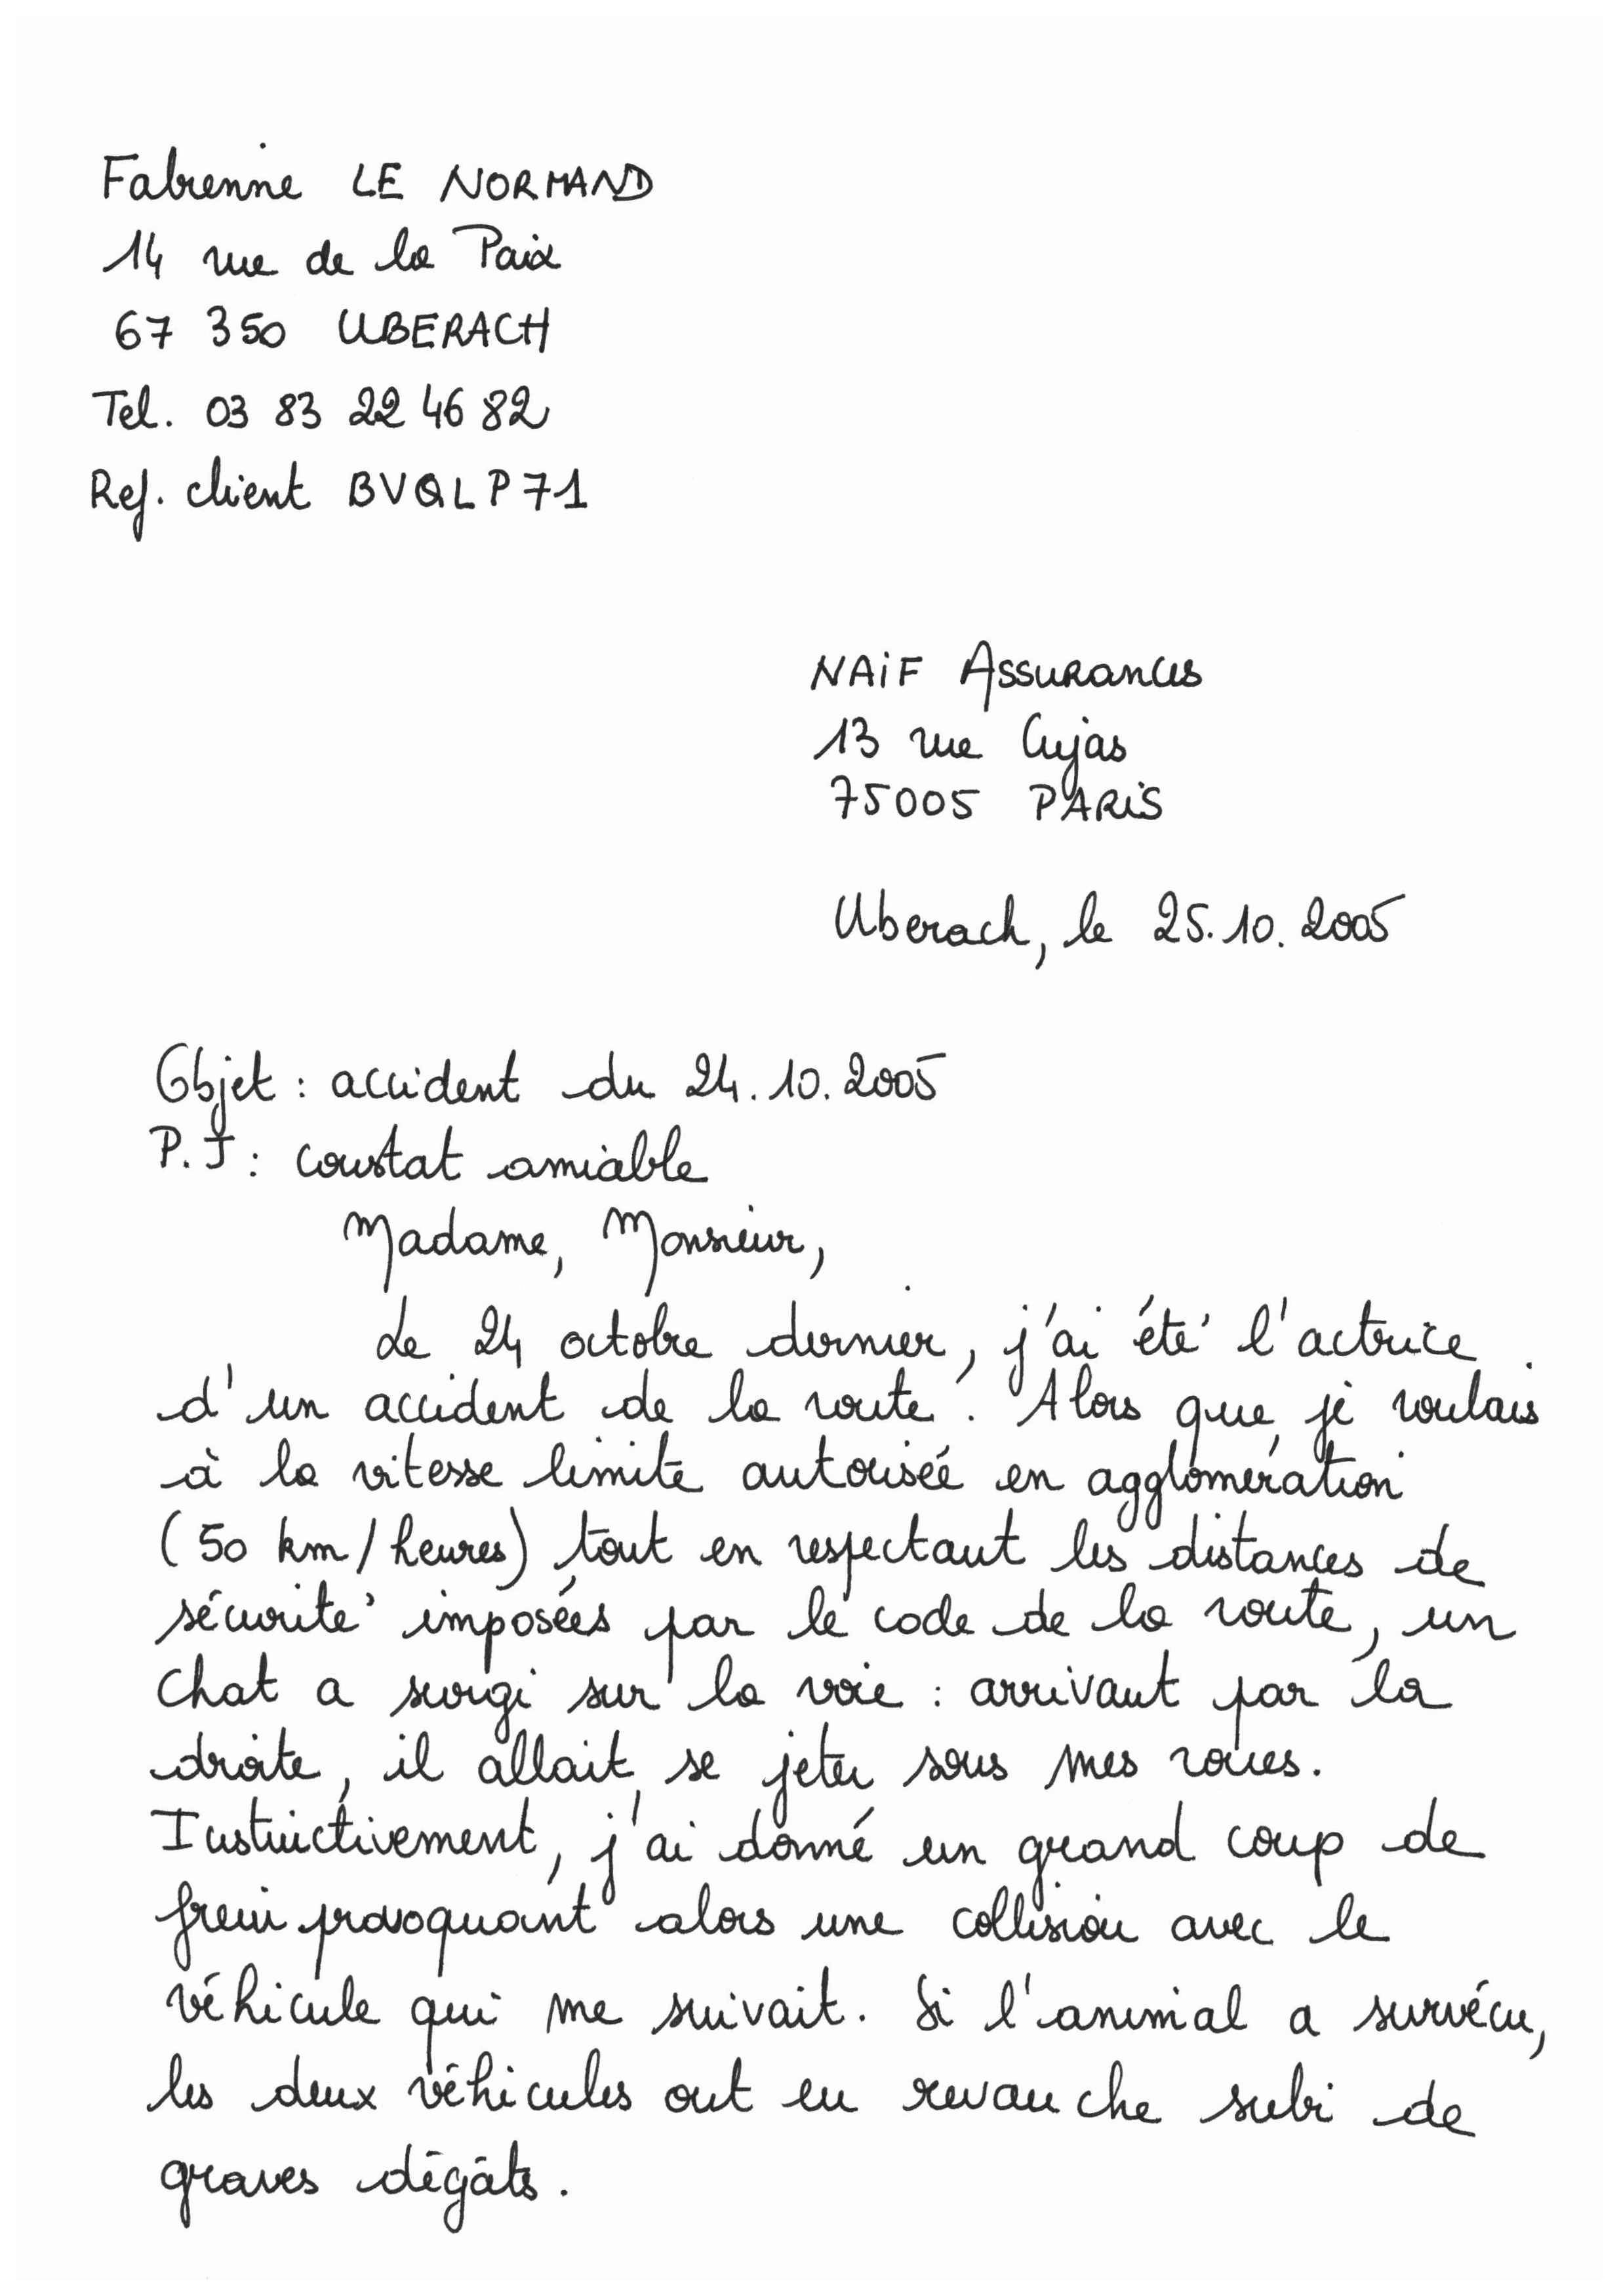 Fabienne LE NORMAND
14 rue de la Paix
67 350 UBERACH
Tel. 03 83 22 46 82
Ref. client BVQLP71
NAiF Assurances
13 rue Cujas
75005 PARiS
Uberach, le 25.10.2005
Objet : accident du 24.10.2005
P.J : constat amiable
Madame, Monsieur,
Le 24 octobre dernier, j'ai été l'actrice
d'un accident de la route. Alors que je roulais
à la vitesse limite autorisée en agglomération
(50 km/heures) tout en respectant les distances de
sécurité imposées par le code de la route, un
chat a surgi sur la voie : arrivant par la
droite, il allait se jeter sous mes roues.
Instinctivement, j'ai donné un grand coup de
frein provoquant alors une collision avec le
véhicule qui me suivait. Si l'animal a survécu,
les deux véhicules ont en revanche subi de
graves dégâts.